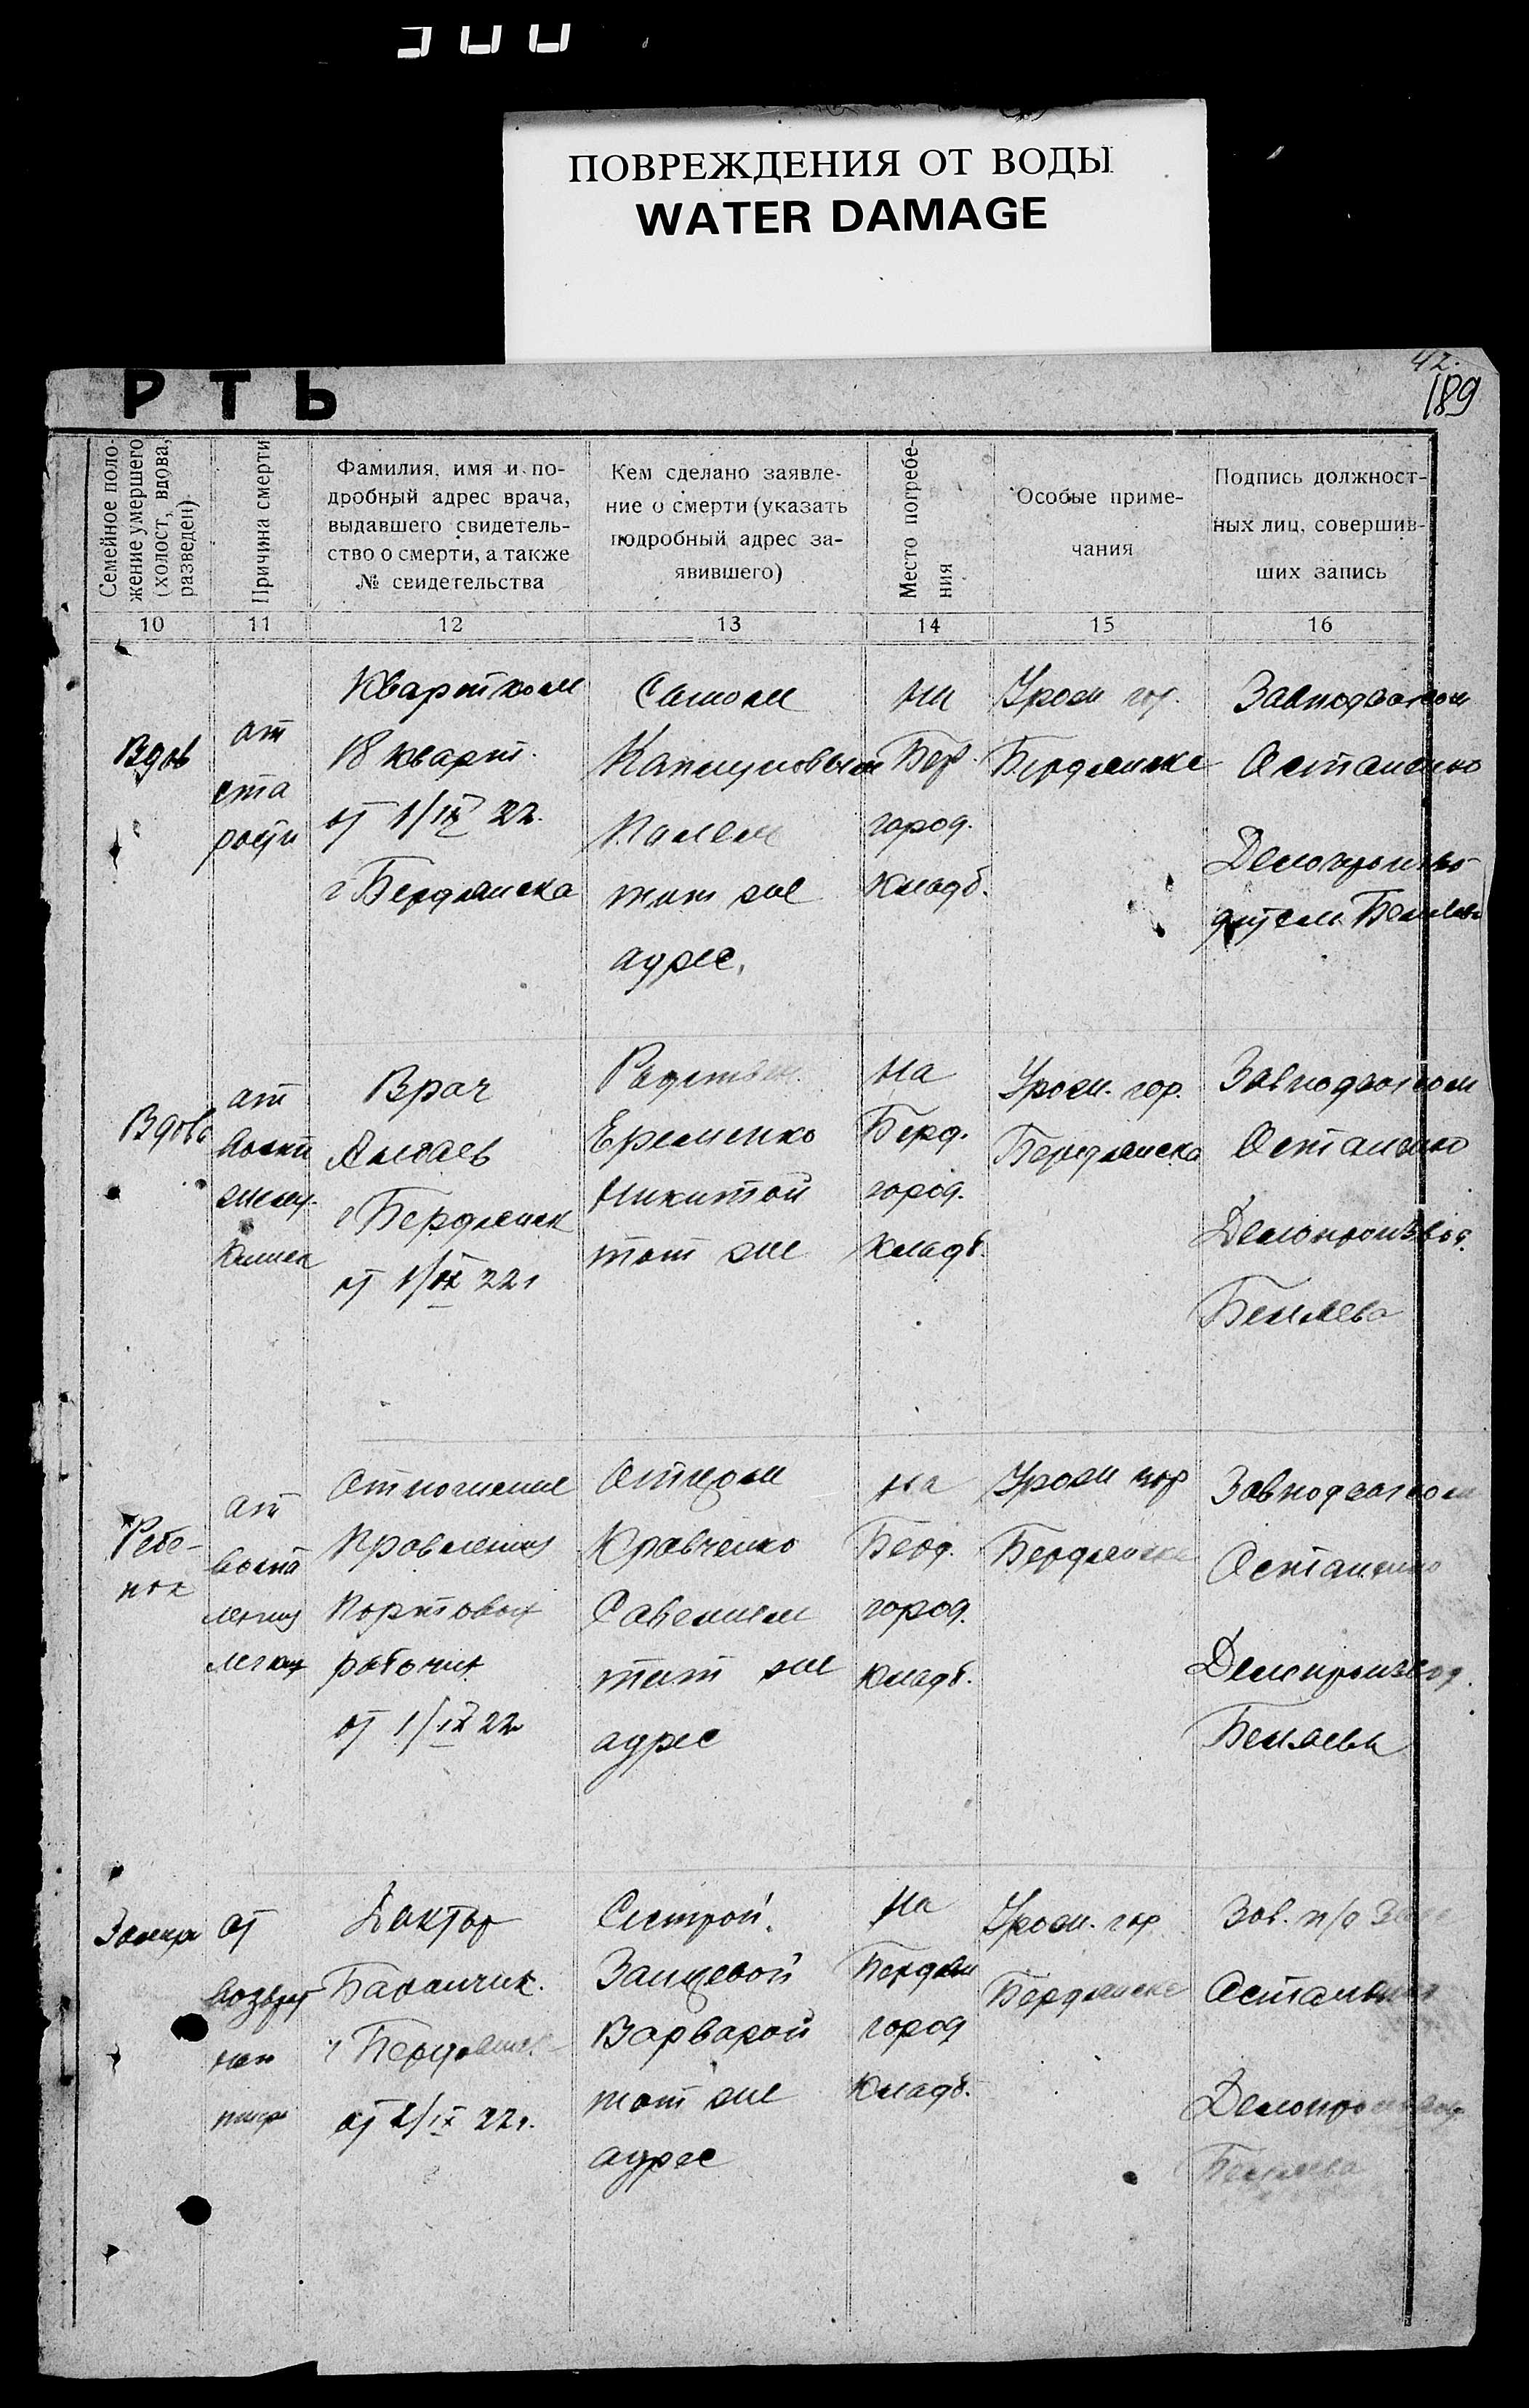 ПОВРЕЖДЕНИЯ ОТ ВОДЫ
WATER DAMAGE
42.
189
РТЬ
Семейное поло-
жение умершего
(холост, вдова,
разведен)
Причина смерти
Фамилия, имя и по-
дробный адрес врача,
выдавшего свидетель-
ство о смерти, а также
№ свидетельства
Кем сделано заявле-
ние о смерти (указать
подробный адрес за-
явившего)
Место погребе-
ния
Особые приме-
чания
Подпись должност-
ных лиц, совершив-
ших запись
10
11
12
13
14
15
16
Вдов
от
ста
рости
Квартхом
18 кварт.
от 1/IX 22.
г Бердянска
тот же
адрес.
на
Бер.
город.
кладб.
Урож гор.
Бердянска
Завподзагсом
Остапенко
Делопроизво
дител Беляева
Вдова
от
Врач
г Бердянск
от 1/IX 22г
Еременко
Никитой
тот же
На
Берд.
город.
кладб.
Урож. гор.
Бердянска
Завподзагсом
Остапенко
Делопроизвод.
Беляева
Ребе-
нок
от
воспа
ления
легких
Отношение
Правления
Портовых
рабочих
от 1/IX 22г
Отцом
Кравченко
Савелием
тот же
адрес
на
Берд.
город.
кладб.
Урож гор
Бердянска
Завподзагсом
Остапенко
Делопроизвод.
Беляева
Замуж
от
возврат
ного
тифа
Доктор
г Бердянск
от 2/IX 22г.
Сестрой
Зайцевой
Варварой
тот же
адрес
На
Бердян
город
кладб.
Урож. гор.
Бердянска
Зав. п/о Загс
Остапенко
Делопроизвод
Беляева